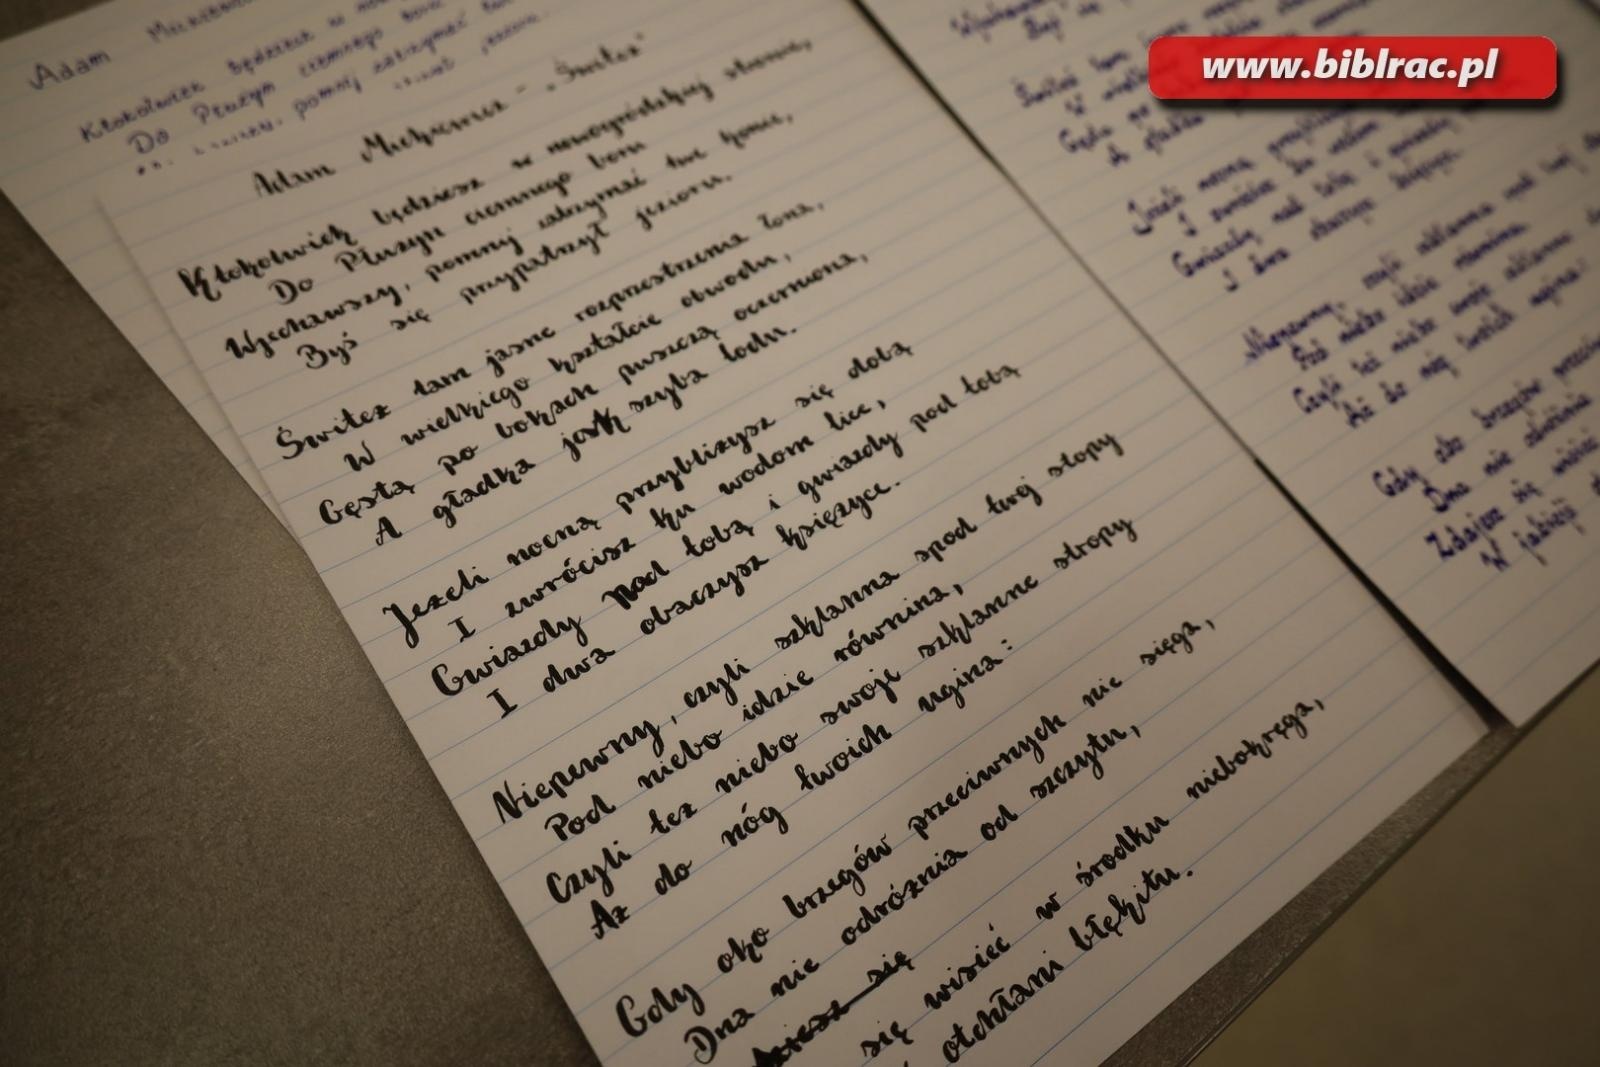 www.biblrac.pl
Adam
Ktokolwiek będziesz w
Do Płużyn ciemnego boru
pomnij zatrzymać
Adam Mickiewicz - „Świteź"
Ktokolwiek będziesz w nowogródzkiej stronie,
Do Płużyn ciemnego boru
Wjechawszy, pomnij zatrzymać twe konie,
Byś się przypatrzył jezioru.
Świteź tam jasne rozprzestrzenia łona,
W wielkiego kształcie obwodu,
Gęstą po bokach puszczą oczerniona,
A gładka jak szyba lodu.
Jeżeli nocną przybliżysz się dobą
I zwrócisz ku wodom lice,
Gwiazdy nad tobą i gwiazdy pod tobą
I dwa obaczysz księżyce.
Niepewny, czyli szklanna spod twej stopy
Pod niebo idzie równina,
Czyli też niebo swoje szklanne stropy
Aż do nóg twoich ugina:
Gdy oko brzegów przeciwnych nie sięga,
Dna nie odróżnia od szczytu,
się
się wisieć w środku niebokręga,
otchłani błękitu.
Świteź tam
W
Gęstą po
A gładka
Jeżeli nocną
I zwrócisz ku wodom
Gwiazdy nad tobą i gwiazdy
I dwa
Niepewny, czyli szklanna spod twej
Pod niebo idzie równina.
Czyli też niebo swoje szklanne
Aż do nóg twoich ugina:
Gdy oko brzegów
Dna nie odróżnia
Zdajesz się wisieć
W jakiejś